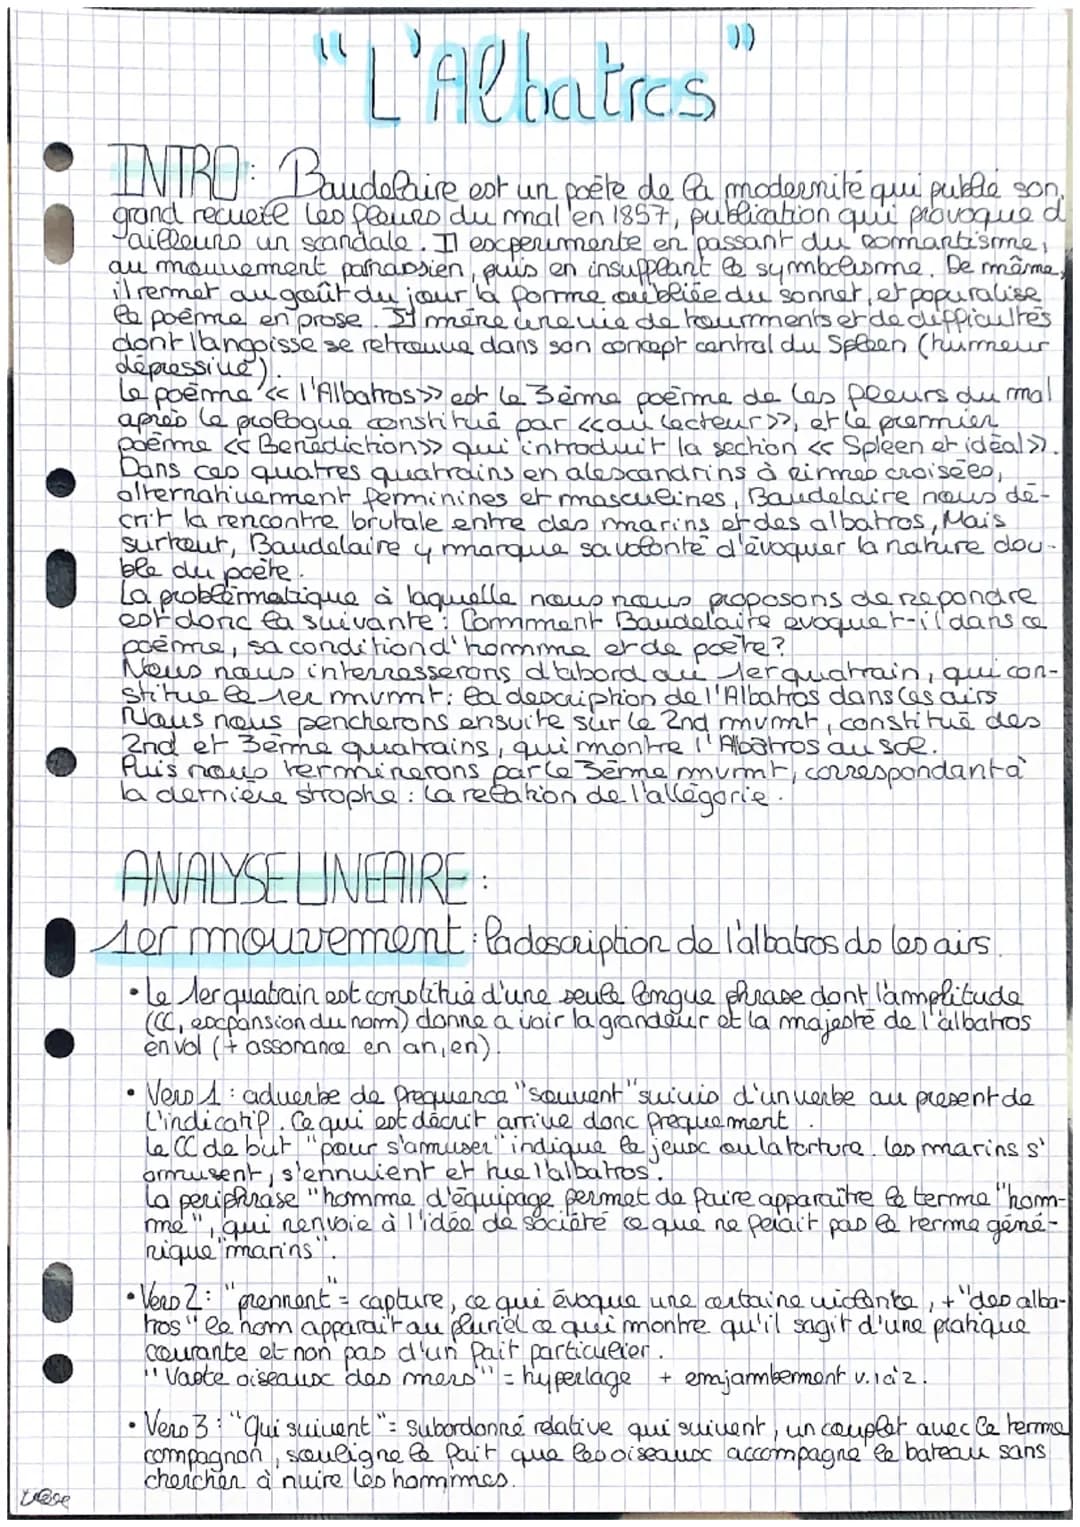 "L'Albatros"
INTRO: Baudelaire est un poète de la modernité qui publie son
grand recueil les fleurs du mal en 1857, publication qui provoque d'
ailleurs un scandale. Il expérimente en passant du romantisme,
au mouvement parnassien, puis en insufflant le symbolisme. De même,
il remet au goût du jour la forme oubliée du sonnet, et popuralise
le poème en prose. Il mène une vie de tourments et de difficultés
dont l'angoisse se retrouve dans son concept central du Spleen (humeur
dépressive).
Le poème << l'Albatros>> est le 3ème poème de les fleurs du mal
après le prologue constitué par <<au lecteur>>, et le premier
poème << Bénédiction>> qui introduit la section << Spleen et idéal>>.
Dans ces quatres quatrains en alexandrins à rimes croisées,
alternativement feminines et masculines, Baudelaire nous dé-
crit la rencontre brutale entre des marins et des albatros, Mais
surtout, Baudelaire y marque sa volonté d'évoquer la nature dou-
ble du poète.
La problèmatique à laquelle nous nous proposons de repondre
est donc la suivante: Comment Baudelaire evoquet-il dans ce
poème, sa condition d'homme et de poète?
Nous nous interresserons d'abord au 1er quatrain, qui con-
stitue le 1er mvmt: la description de l'Albatros dans les airs
Nous nous pencherons ensuite sur le 2nd mvmt, constitué des
2nd et 3ème quatrains, qui montre l'Albatros au sol.
Puis nous terminerons par le 3ème mvmt, correspondant à
la dernière strophe: la relation de l'allégorie.
ANALYSE LINEAIRE:
1er mouvement: la description de l'albatros ds les airs.
• Le 1er quatrain est constitué d'une seule longue phrase dont l'amplitude
(CC, expansion du nom) donne a voir la grandeur et la majesté de l'albatros
en vol (+ assonance en an, en).
• Vers 1: adverbe de frequence "souvent" suivis d'un verbe au present de
l'indicatif. Ce qui est décrit arrive donc frequement.
Le CC de but "pour s'amuser" indique le jeux ou la torture. les marins s'
amusent, s'ennuient et tue l'albatros.
La periphrase "homme d'équipage permet de faire apparaître le terme "hom-
me", qui renvoie à l'idée de société ce que ne ferait pas le terme géné-
rique "marins".
• Vers 2: "prennent" = capture, ce qui évoque une certaine violente, + "des alba-
tros" le nom apparaît au pluriel ce qui montre qu'il sagit d'une pratique
courante et non pas d'un fait particulier.
"Vaste oiseaux des mers" = hyperlage + emjambement v.1 à 2.
• Vers 3: "Qui suivent" = subordonné relative qui suivent, un couplet avec le terme
compagnon, souligne le fait que les oiseaux accompagne le bateau sans
chercher à nuire les hommes.